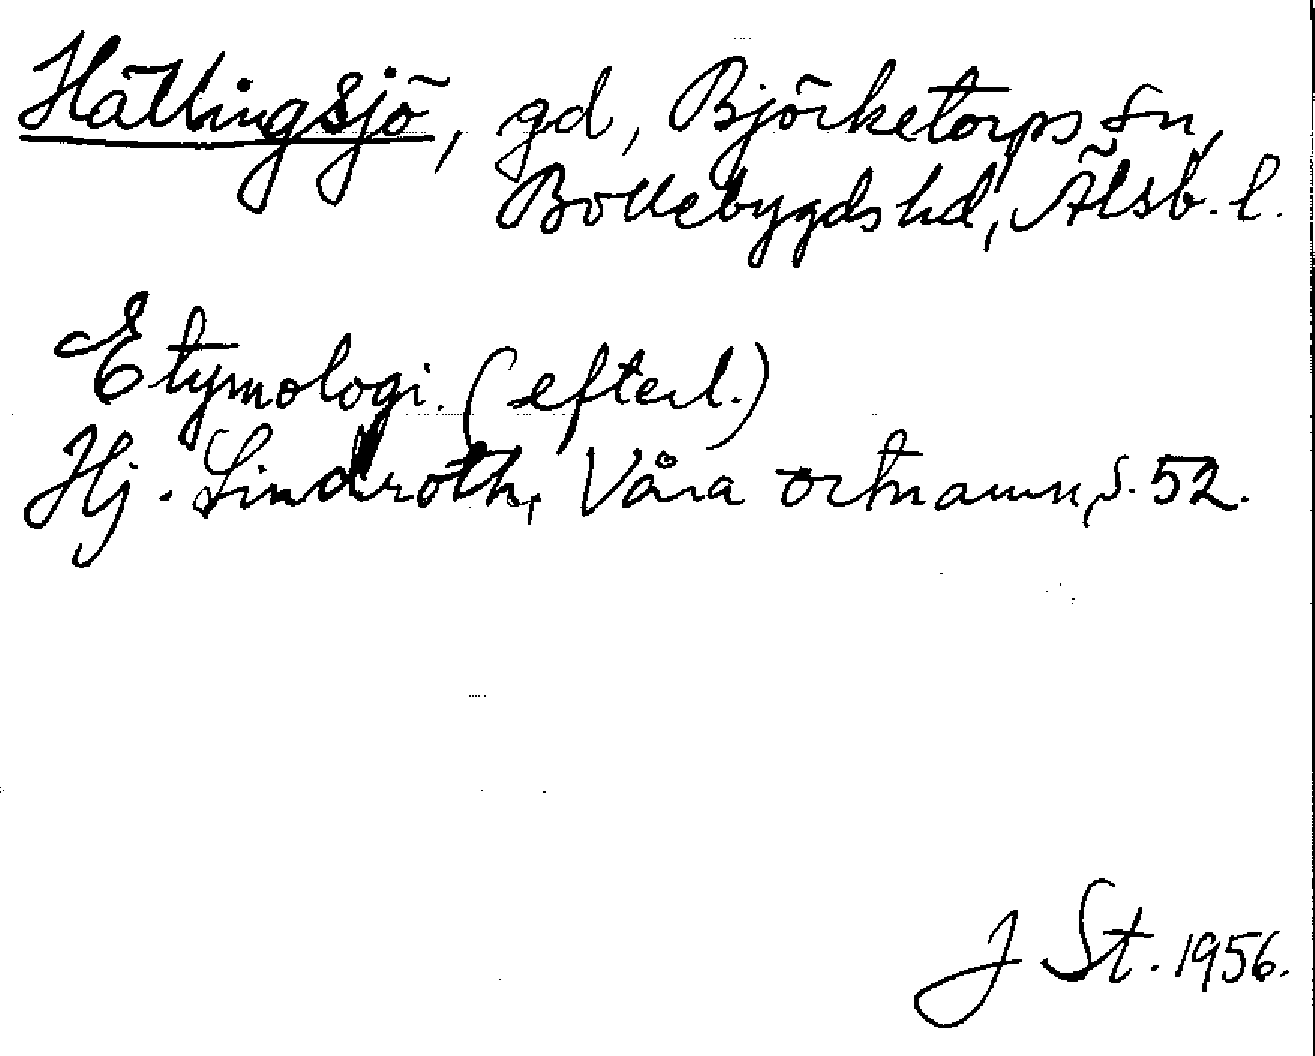 Hällingsjö, gd, Björketorps sn,
Bollebygds hd, Älsb. l.
Etymologi. (efterl.)
Hj. Lindroth, Våra ortnamn, s. 52.
J St. 1956.